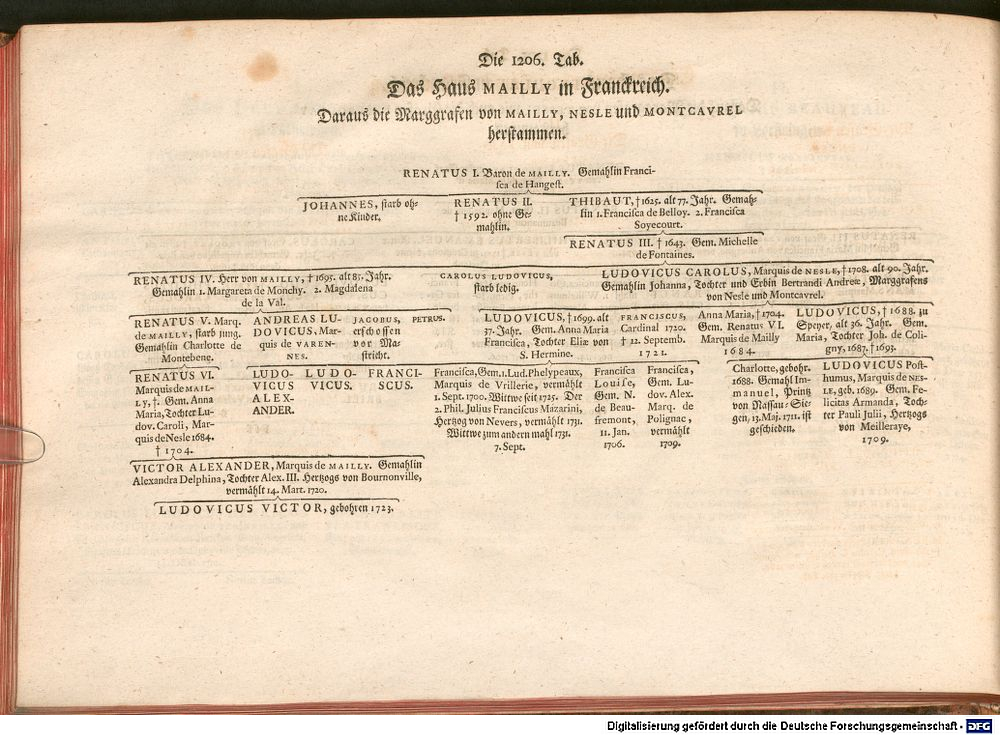 Die 1206. Tab.
Das Haus MAILLY in Franckreich.
Daraus die Marggrafen von MAILLY, NESLE und MONTCAVREL
herstammen.
RENATUS I. Baron de MAILLY. Gemahlin Franci-
sca de Hangest.
JOHANNES, starb oh-
ne Kinder.
RENATUS II.
† 1592. ohne Ge-
mahlin.
THIBAUT, † 1625. alt 77. Jahr. Gemah-
lin 1. Francisca de Belloy. 2. Francisca
Soyecourt.
RENATUS III. † 1643. Gem. Michelle
de Fontaines.
RENATUS IV. Herr von MAILLY, † 1695. alt 85. Jahr.
Gemahlin 1. Margareta de Monchy. 2. Magdalena
de la Val.
CAROLUS LUDOVICUS,
starb ledig.
LUDOVICUS CAROLUS, Marquis de NESLE, † 1708. alt 90. Jahr.
Gemahlin Johanna, Tochter und Erbin Bertrandi Andreæ, Marggrafens
von Nesle und Montcavrel.
RENATUS V. Marq.
de MAILLY, starb jung.
Gemahlin Charlotte de
Montebene.
ANDREAS LU-
DOVICUS, Mar-
quis de VAREN-
NES.
JACOBUS,
erschossen
vor Ma-
stricht.
PETRUS.
LUDOVICUS, † 1699. alt
37. Jahr. Gem. Anna Maria
Francisca, Tochter Eliæ von
S. Hermine.
FRANCISCUS,
Cardinal 1720.
† 12. Septemb.
1721.
Anna Maria, † 1704.
Gem. Renatus VI.
Marquis de Mailly
1684.
LUDOVICUS, † 1688. zu
Speyer, alt 36. Jahr. Gem.
Maria, Tochter Joh. de Coli-
gny, 1687. † 1693.
RENATUS VI.
Marquis de MAIL-
LY, †. Gem. Anna
Maria, Tochter Lu-
dov. Caroli, Mar-
quis de Nesle 1684.
† 1704.
LUDO-
VICUS
ALEX-
ANDER.
LUDO-
VICUS.
FRANCI-
SCUS.
Francisca, Gem. 1. Lud. Phelypeaux,
Marquis de Vrillerie, vermählt
1. Sept. 1700. Wittwe seit 1725. Der
2. Phil. Julius Franciscus Mazarini,
Hertzog von Nevers, vermählt 1731.
Wittwe zum andern mahl 1731.
7. Sept.
Francisca
Louise,
Gem. N.
de Beau-
fremont,
11. Jan.
1706.
Francisca,
Gem. Lu-
dov. Alex.
Marq. de
Polignac,
vermählt
1709.
Charlotte, gebohr.
1688. Gemahl Im-
manuel, Printz
von Nassau-Sie-
gen, 13. Maj. 1711. ist
geschieden.
LUDOVICUS Post-
humus, Marquis de NES-
LE, geb. 1689. Gem. Fe-
licitas Armanda, Toch-
ter Pauli Julii, Hertzogs
von Meilleraye,
1709.
VICTOR ALEXANDER, Marquis de MAILLY. Gemahlin
Alexandra Delphina, Tochter Alex. III. Hertzogs von Bournonville,
vermählt 14. Mart. 1720.
LUDOVICUS VICTOR, gebohren 1723.
Digitalisierung gefördert durch die Deutsche Forschungsgemeinschaft - DFG